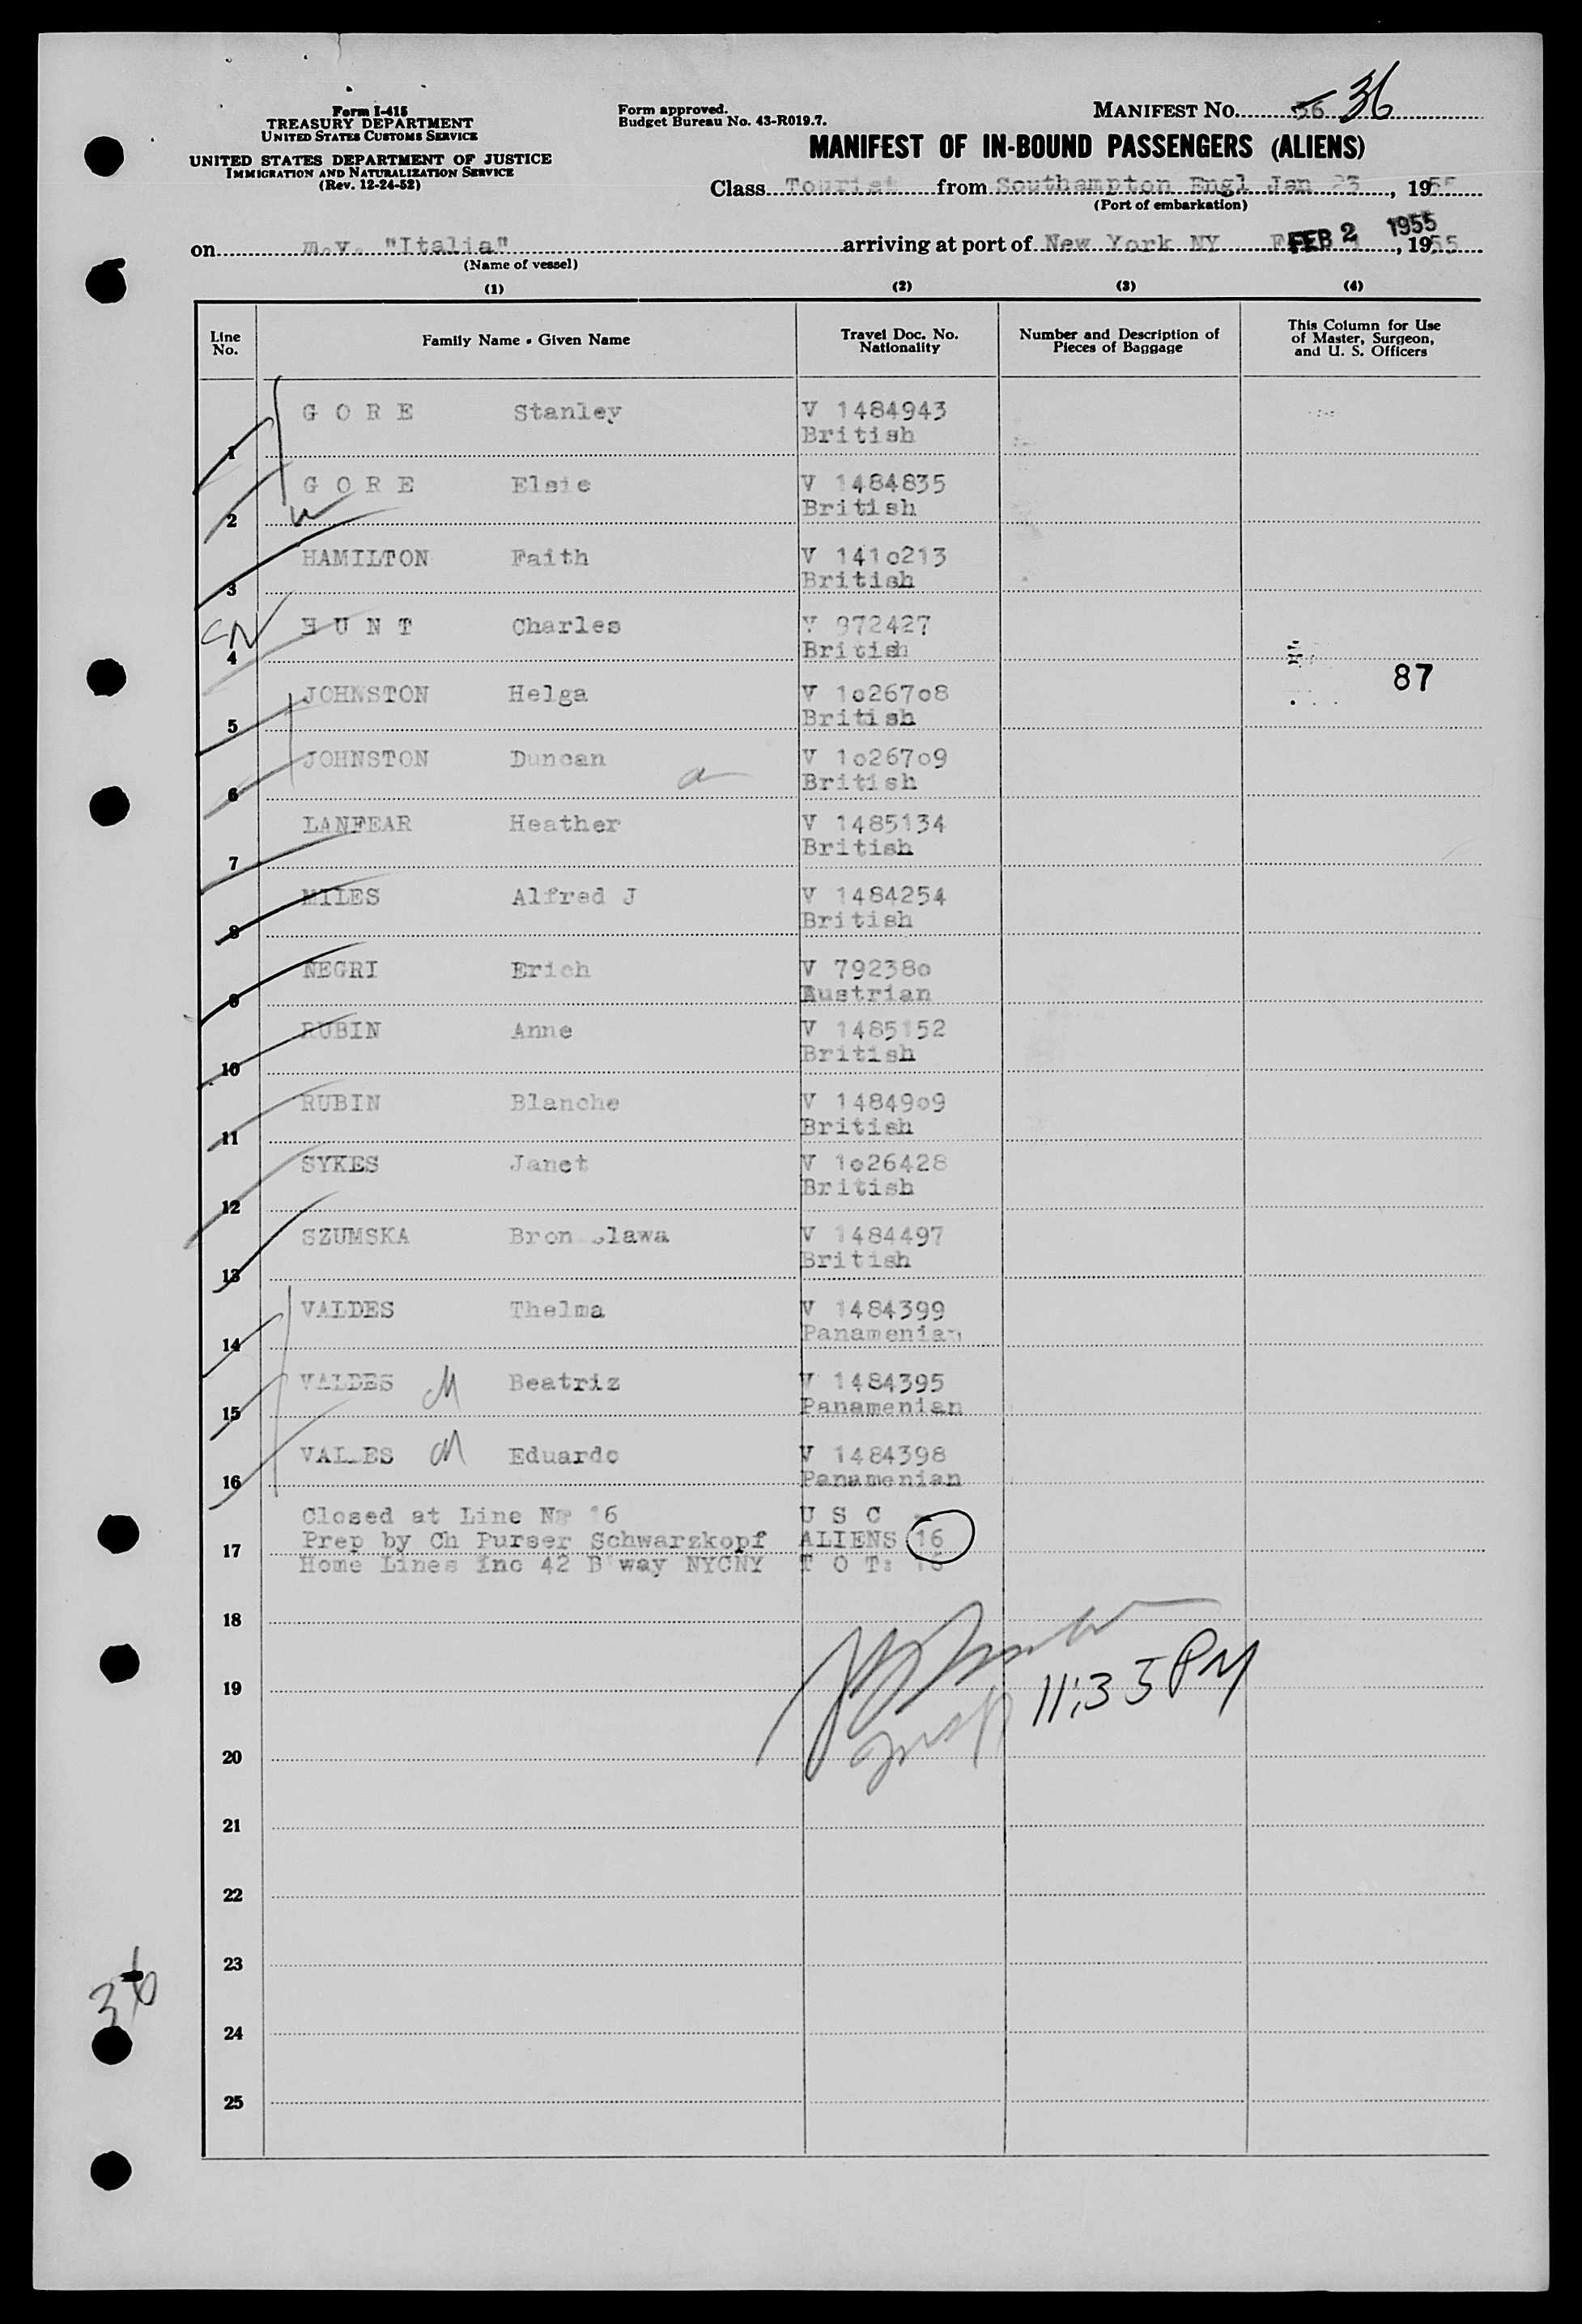 Form I-415
TREASURY DEPARTMENT
UNITED STATES CUSTOMS SERVICE
UNITED STATES DEPARTMENT OF JUSTICE
IMMIGRATION AND NATURALIZATION SERVICE
(Rev. 12-24-52)
Form approved.
Budget Bureau No. 43-R019.7.
MANIFEST NO. 36 36
MANIFEST OF IN-BOUND PASSENGERS (ALIENS)
Class Tourist from Southampton Engl Jan 23, 1955
(Port of embarkation)
on m.v. "Italia" arriving at port of New York NY FEB 2 1955, 1955
(Name of vessel)
(1) (2) (3) (4)
Line No. Family Name • Given Name Travel Doc. No. Nationality Number and Description of Pieces of Baggage This Column for Use of Master, Surgeon, and U. S. Officers
1 G O R E Stanley V 1484943
British
2 G O R E Elsie V 1484835
British
3 HAMILTON Faith V 1410213
British
4 H U N T Charles V 972427
British
87
5 JOHNSTON Helga V 1026708
British
6 JOHNSTON Duncan V 1026709
British
7 LANFEAR Heather V 1485134
British
8 MILES Alfred J V 1484254
British
9 NEGRI Erich V 792380
Austrian
10 RUBIN Anne V 1485152
British
11 RUBIN Blanche V 1484909
British
12 SYKES Janet V 1026428
British
13 SZUMSKA Bron slawa V 1484497
British
14 VALDES Thelma V 1484399
Panamenian
15 VALDES M Beatriz V 1484395
Panamenian
16 VAL ES M Eduardo V 1484398
Panamenian
Closed at Line No 16 U S C -
17 Prep by Ch Purser Schwarzkopf ALIENS 16
Home Lines Inc 42 B'way NYCNY T O T: 16
18
19 11:35 PM
20
21
22
23
36
24
25